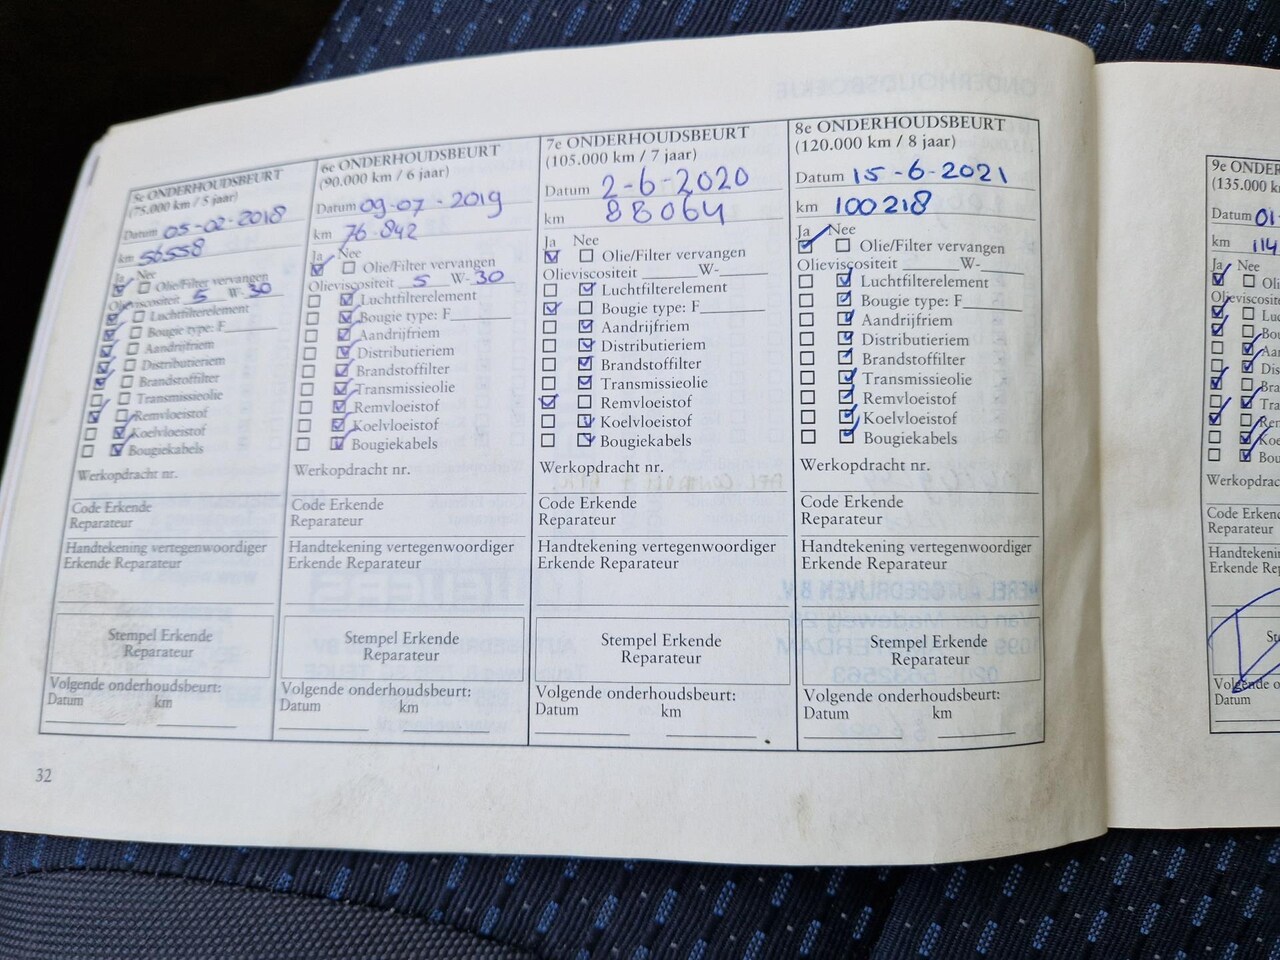 5e ONDERHOUDSBEURT
(75.000 km / 5 jaar)
Datum 05-02-2018
km 56558
Ja Nee
Olie/Filter vervangen
Olieviscositeit 5 W-30
Luchtfilterelement
Bougie type: F
Aandrijfriem
Distributieriem
Brandstoffilter
Transmissieolie
Remvloeistof
Koelvloeistof
Bougiekabels
Werkopdracht nr.
Code Erkende
Reparateur
Handtekening vertegenwoordiger
Erkende Reparateur
Stempel Erkende
Reparateur
Volgende onderhoudsbeurt:
Datum km
6e ONDERHOUDSBEURT
(90.000 km / 6 jaar)
Datum 09-07-2019
km 76.842
Ja Nee
Olie/Filter vervangen
Olieviscositeit 5 W-30
Luchtfilterelement
Bougie type: F
Aandrijfriem
Distributieriem
Brandstoffilter
Transmissieolie
Remvloeistof
Koelvloeistof
Bougiekabels
Werkopdracht nr.
Code Erkende
Reparateur
Handtekening vertegenwoordiger
Erkende Reparateur
Stempel Erkende
Reparateur
Volgende onderhoudsbeurt:
Datum km
7e ONDERHOUDSBEURT
(105.000 km / 7 jaar)
Datum 2-6-2020
km 88064
Ja Nee
Olie/Filter vervangen
Olieviscositeit W-
Luchtfilterelement
Bougie type: F
Aandrijfriem
Distributieriem
Brandstoffilter
Transmissieolie
Remvloeistof
Koelvloeistof
Bougiekabels
Werkopdracht nr.
Code Erkende
Reparateur
Handtekening vertegenwoordiger
Erkende Reparateur
Stempel Erkende
Reparateur
Volgende onderhoudsbeurt:
Datum km
8e ONDERHOUDSBEURT
(120.000 km / 8 jaar)
Datum 15-6-2021
km 100218
Ja Nee
Olie/Filter vervangen
Olieviscositeit W-
Luchtfilterelement
Bougie type: F
Aandrijfriem
Distributieriem
Brandstoffilter
Transmissieolie
Remvloeistof
Koelvloeistof
Bougiekabels
Werkopdracht nr.
Code Erkende
Reparateur
Handtekening vertegenwoordiger
Erkende Reparateur
Stempel Erkende
Reparateur
Volgende onderhoudsbeurt:
Datum km
32
9e ONDER
(135.000 km
Datum 01
km 114
Ja Nee
Oli
Olieviscosi
Lu
Bou
Aan
Dis
Bra
Tra
Rem
Koe
Bou
Werkopdrac
Code Erken
Reparateur
Handtekenin
Erkende Rep
Volgende o
Datum